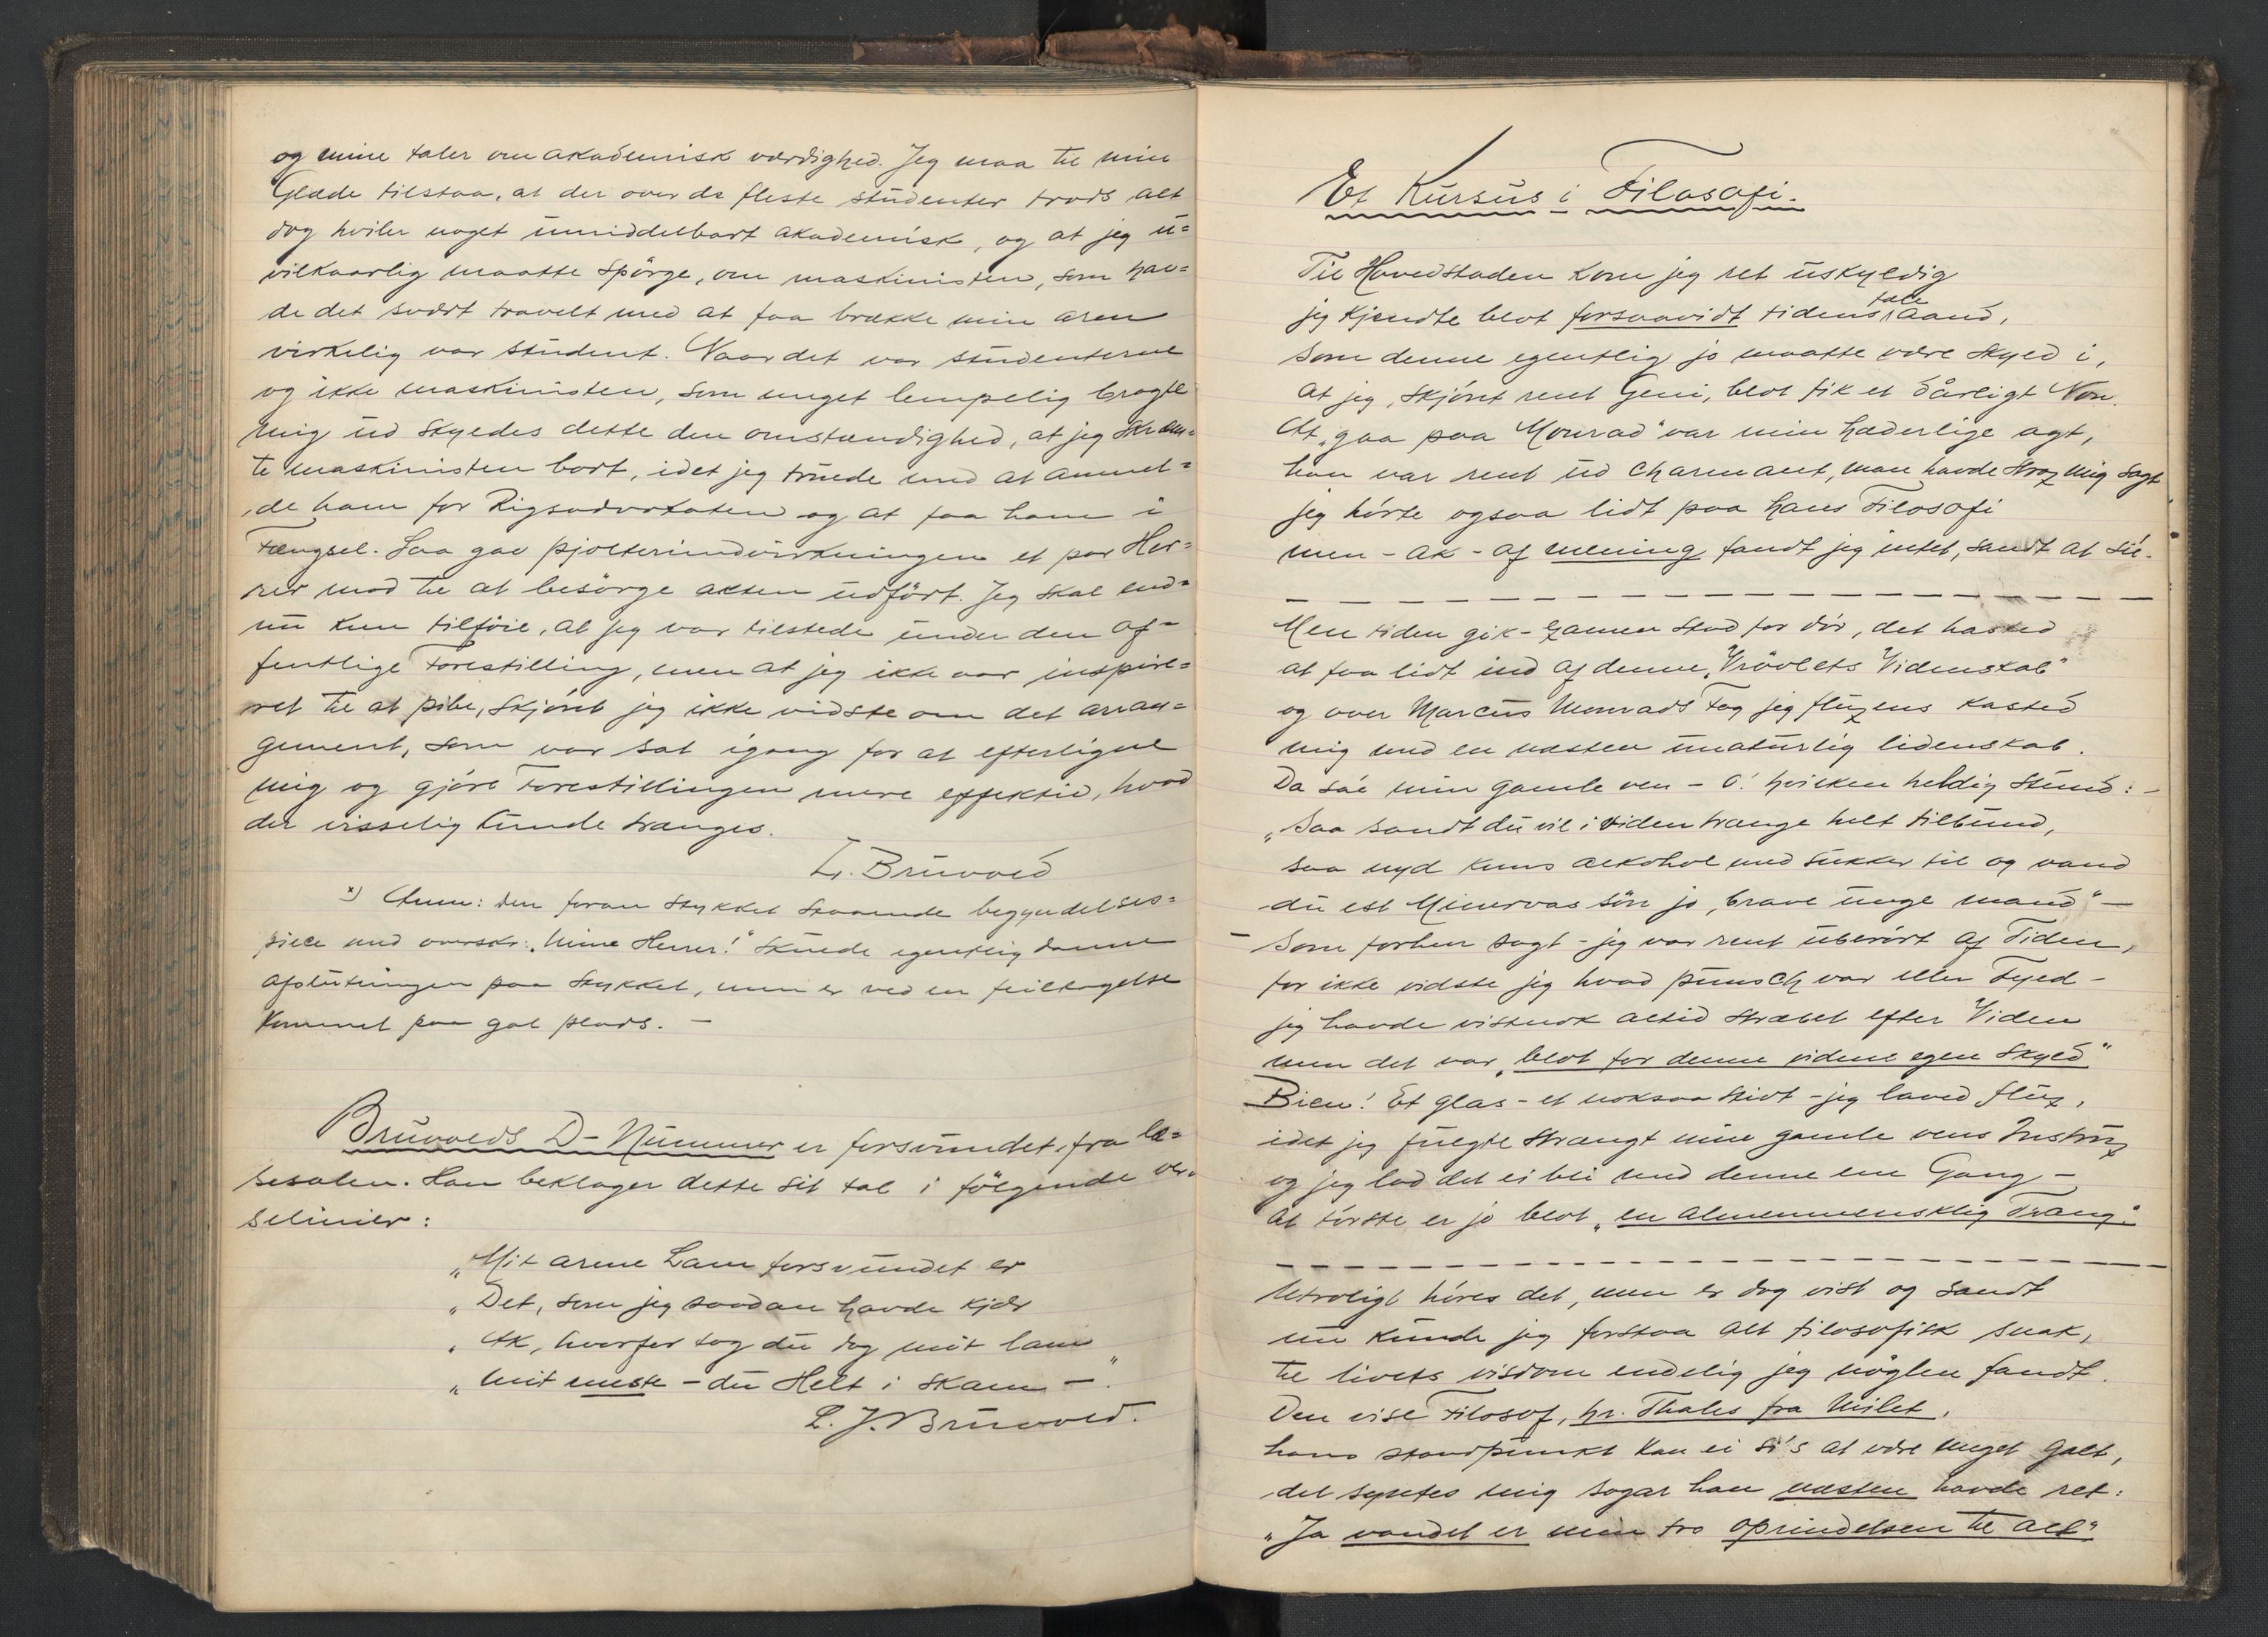 og mine taler om akademisk værdighed. Jeg maa til min
Glæde tilstaa, at der over de fleste studenter trods alt
dog hviler noget umiddelbart akademisk, og at jeg u=
vilkaarlig maatte spörge, om maskinisten, som hav=
de det svært travelt med at faa brække min arm
virkelig var student. Naar det var studenterne
og ikke maskinisten, som meget lempelig bragte
mig ud skyldes dette den omstændighed, at jeg skræm=
te maskinisten bort, idet jeg truede med at anmel=
de ham for Rigsadvokaten og at faa ham i
Fængsel. Saa gav pjolterindvirkningen et par Her=
rer mod til at besörge akten udfört. Jeg skal end=
nu kun tilföie, at jeg var tilstede under den of=
fentlige Forestilling, men at jeg ikke var inspire=
ret til at pibe, skjönt jeg ikke vidste om det arran=
gement, som var sat igang for at efterligne
mig og gjöre Forestillingen mere effektiv, hvad
der visselig kunde trænges.
L. Bruvold
x) Anm: Den foran stykket staaende begyndelses=
piece med overskr: „Mine Herrer!" skulde egentlig danne
afslutningen paa stykket, men er ved en feiltagelse
kommet paa gal plads. —
Bruvolds D-Nummer er forsvundet fra læ=
sesalen. Han beklager dette sit tab i fölgende ver=
selinier:
„Mit arme Lam forsvundet er
„Det, som jeg saadan havde kjær
„Ak, hvorfor tog du dog mit lam
„mit eneste – du Helt i skam –"
L. J. Bruvold.
Et Kursus i Filosofi.
Til Hovedstaden kom jeg ret uskyldig
jeg kjendte blot forsaavidt tidens fale aand,
som denne egentlig jo maatte være skyld i,
at jeg, skjönt rent Geni, blot fik et dårligt Non.
At „gaa paa Monrad" var min hæderlige agt,
han var rent ud charmant, man havde strax mig sagt
jeg hörte ogsaa lidt paa hans Filosofi
men – ak – af mening fandt jeg intet, sandt at sie.
Men tiden gik – Examen stod for dör, det hasted
at faa lidt ind af denne „Vrövlets Videnskab"
og over Marcus Monrads Fag jeg fluxens kasted
mig med en næsten unaturlig lidenskab.
Da sa'e min gamle ven – O! hvilken heldig stund: –
„Saa sandt du vil i viden trænge helt tilbund,
saa nyd kuns alkohol med sukker til og vand
du est Minervas sön jo, brave unge mand" –
– Som forhen sagt – jeg var rent uberört af Tiden,
for ikke vidste jeg hvad punsch var eller Fyld –
jeg havde vistnok altid stræbet efter Viden
men det var „blot for denne videns egen skyld"
Bien! Et glas – et noksaa stivt – jeg laved flux,
idet jeg fulgte strængt min gamle vens Instrux
og jeg lod det ei bli med denne ene Gang –
at törste er jo blot „en almenmenneskelig Trang".
Utroligt höres det, men er dog vist og sandt
nu kunde jeg forstaa alt filosofisk snak,
til livets visdom endelig jeg nöglen fandt.
Den vise Filosof, hr. Thales fra Milet,
hans standpunkt kan ei si's at være meget galt,
det syntes mig sogar han næsten havde ret:
„Ja vandet er min tro oprindelsen til alt"